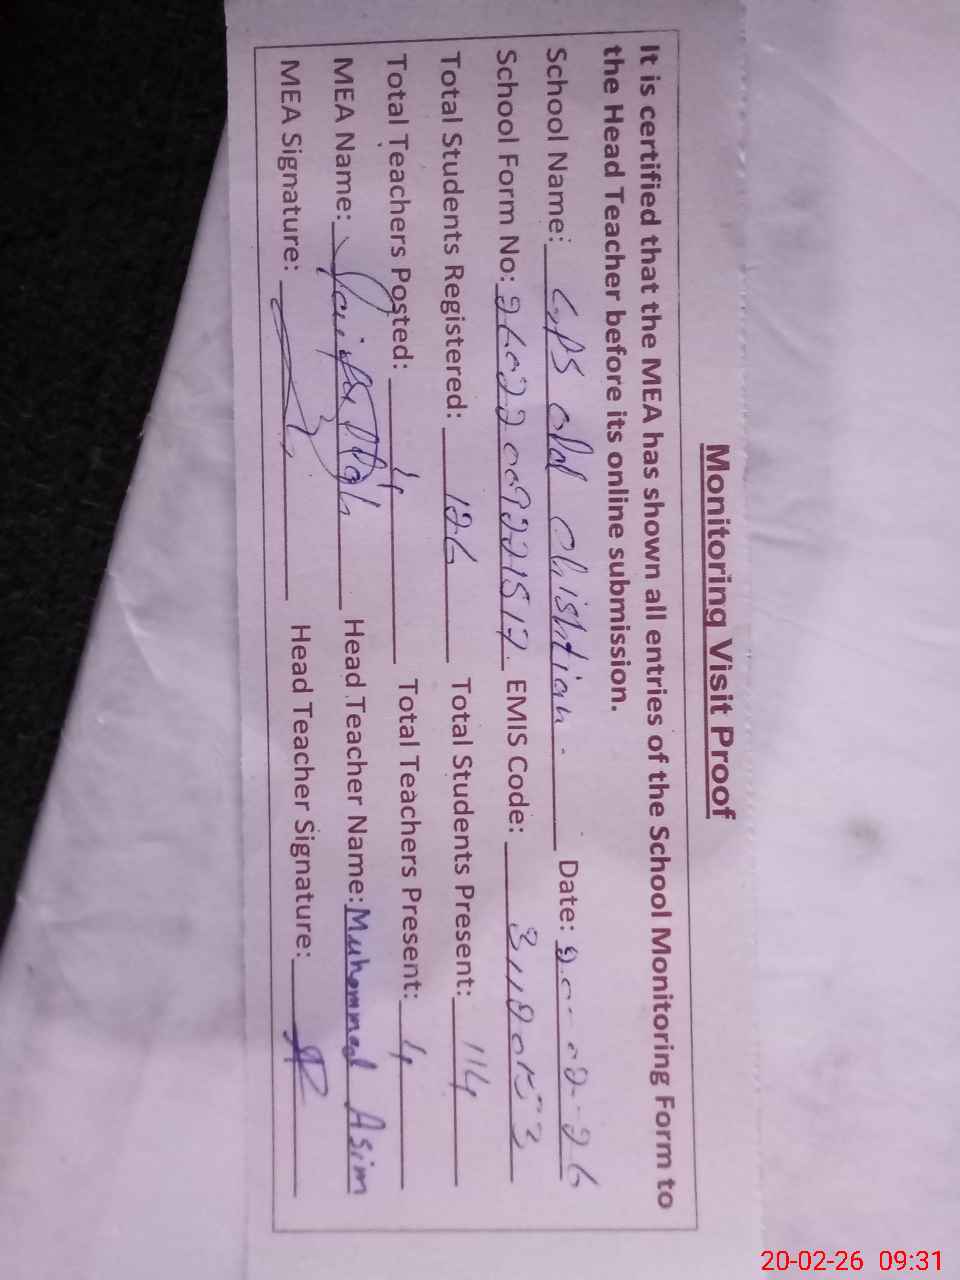 Monitoring Visit Proof
It is certified that the MEA has shown all entries of the School Monitoring Form to
the Head Teacher before its online submission.
School Name: GPS old chishtian. Date: 20-02-26
School Form No: EMIS Code: 31120153
Total Students Registered: 126 Total Students Present: 114
Total Teachers Posted: 4 Total Teachers Present: 4
MEA Name: Head Teacher Name: Muhammad Asim
MEA Signature: Head Teacher Signature:
20-02-26 09:31